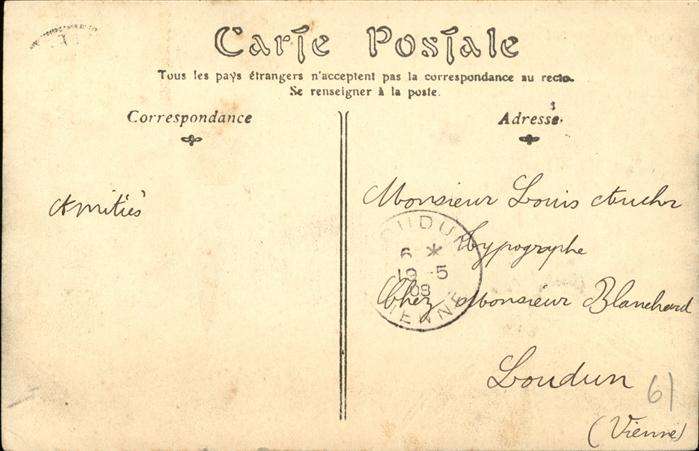 Carte Postale
Tous les pays étrangers n'acceptent pas la correspondance au recto.
Se renseigner à la poste.
Correspondance
Adresse
Amitiés
Monsieur Louis
Typographe
Chez Monsieur Blanchard
Loudun
(Vienne)
61
LOUDUN
6 *
19 -5
08
VIENNE